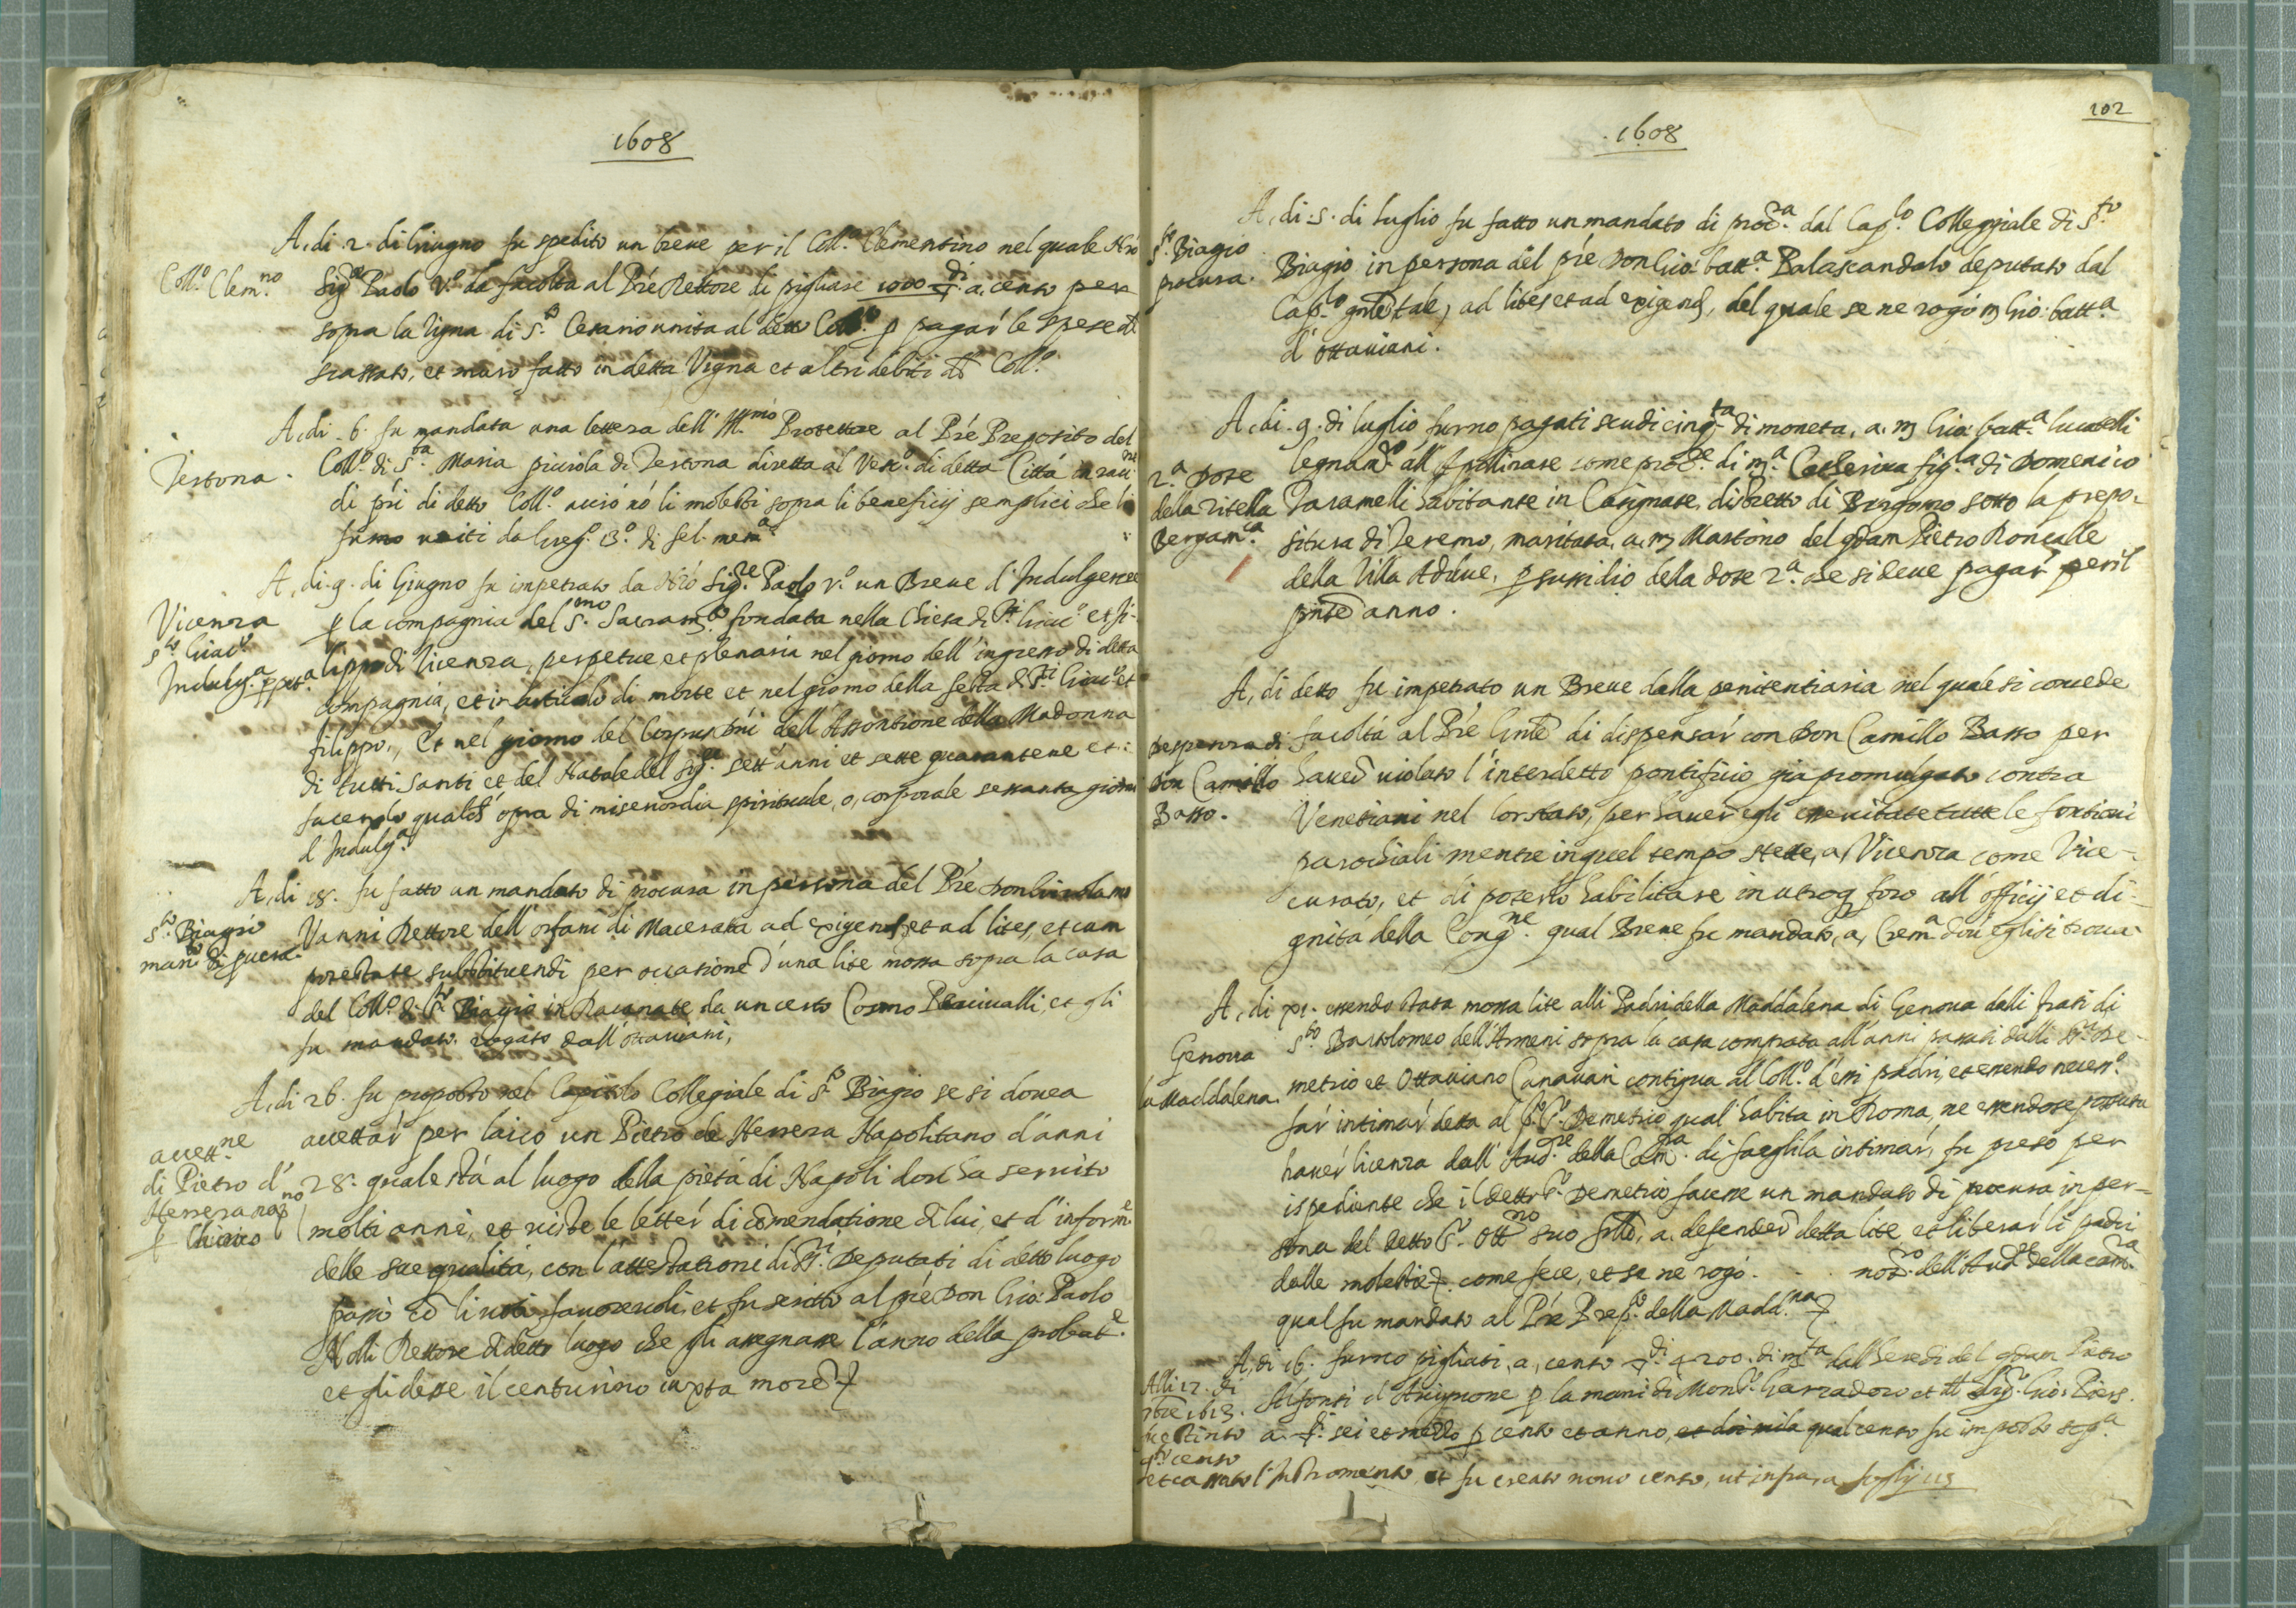 1608
A, di 2. di Giugno fu spedito un breve per il Coll.º Clementino nel quale Nrò
Coll.º Clem.no
Sig.re Paolo V.º da facolta al Prè Rettore di pigliare 1000 di a, censo per
sopra la vigna di S.to Cesario unita al detto Coll.º p pagar le spese
et muro fatto in detta Vigna et altri debiti Coll.º
A, di 6. fu mandata una lettera dell' Ill.mo Protettore al Prè Preposito del
Tertona.
Coll.º di S.ta Maria piccola di Tertona diretta al Vesc.º di detta Città
di pri di detto Coll.º acciò nò li molesti sopra li beneficij semplici che li
furno uniti da Greg.º 13.º di fel. mem.a
A, di 9. di Giugno fu impetrato da Nrò Sig.re Paolo V.º un Breve d' Indulgenze
Vicenza
S.to Giac.º
Indulg.a ppet.a
p la compagnia del S.mo Sacram.to fondata nella Chiesa di S.ti Giac.º et fi-
lippo di Vicenza, perpetue, et plenaria nel giorno dell' ingresso di detta
compagnia, et in articulo di morte et nel giorno della festa di S.ti Giac.º et
filippo, Et nel giorno del Corpus Dñi dell' Assontione della Madonna
di tutti Santi et del Natale del Sig.re sett' anni et sette quarantene et:
facendo opra di misericordia spirituale, o, corporale sessanta giorni
d' Indulg.a
A, di 18. fu fatto un mandato di procura in persona del Prè Don Girolamo
S.to Biagio
man.to di pcura.
Vanni Rettore dell' orfani di Macerata ad exigend, et ad lites, et cum
potestate substituendi per occasione d' una lite mossa sopra la casa
del Coll.º di S.to Biagio in Racanate da un certo Cosmo Percivalli, et gli
fu mandato. rogato dall' Ottaviani,
A, di 26. fu proposto nel Capitolo Collegiale di S.to Biagio se si dovea
accett.ne
di Pietro d'
Herrera nap.no
p Chierico
accettar per laico un Pietro de Herrera Napolitano d' anni
28. quale stà al luogo della pietà di Napoli dove ha servito
molti anni, et viste le letter di còmendatione di lui, et d' inform.e
delle sue qualità, con l' attestationi di SS.ri Deputati di detto luogo
passò cò li voti favorevoli, et fu scritto al prè Don Gio: Paolo
Nolli Rettore di detto luogo che gli assegnasse l' anno della probat.e
et gli desse il centurino iuxta more
102
1608
S.to Biagio
procura.
A, di 5. di luglio fu fatto un mandato di proc.ra dal Cap.lo Collegiale di S.to
Biagio in persona del prè Don Gio: batt.a Palascandolo deputato dal
Cap.lo gnle tale, ad lites et ad exigend, del quale se ne rogò m Gio: batt.a
d' Ottaviani.
A, di 9. di luglio furno pagati scudi cinq.ta di moneta, a. m Gio: batt.a lucatelli
2.a Dote
della zitella
Bergam.ca
legnan.º all' Apollinare come proc.re di m.a Catherina fig.a di Domenico
Paramelli habitante in Carignate, distretto di Bergomo sotto la prepo-
situra di Teremo, maritata, a, m Martino del qdam Pietro Roncalle
della Villa Adduve, p sussidio della dote 2.a che si deve pagar per il
pnte anno.
A, di detto fu impetrato un Breve dalla penitentiaria nel quale si concede
Despenza di
Don Camillo
Basso.
facoltà al Prè Gnle di dispensar con Don Camillo Basso per
haver violato l' interdetto pontificio già promulgato contra
Venetiani nel lor stato, per haver egli essercitate tutte le fontioni
parochiali mentre in quel tempo stette, a, Vicenza come Vice-
curato, et di poterlo habilitare in utroq foro all' officij et di-
gnità della Cong.ne qual Breve fu mandato, a, Crem.a dov' egli si trova
A, di xi. essendo stata mossa lite alli Padri della Maddalena di Genova dalli frati di
Genova
la Maddalena.
S.to Bartolomeo dell' Armeni sopra la casa comprata all' anni passati dalli De-
metrio et Ottaviano Canavari contigua al Coll.º d' essi padri, et essendo necess.º
far intimar detta al S.r Demetrio qual habita in Roma, ne essendose potuta
haver licenza dall' Aud.re della Cam.ra di fargli la intimar, fu preso per
ispediente che il detto S.r Demetrio facesse un mandato di procura in per-
sona del detto S.r Ott.no suo frllo, a, defender detta lite et liberar li padri
dalle molestie come fece, et se ne rogò. . . not.º dell' Aud.re della cam.ra
qual fu mandato al Prè Prep.to della Madd.na
A, di 16. furno pigliati, a, censo di 4200. di m.ta dall' heredi del qdam Pietro
Alli 17. di
9bre 1613.
fu estinto
q.to censo
et cassato l' Instromento
Alfonsi d' Avignone p la mani di Mon.r Garzadoro et Sig.r Gio: Piers.
a. sei et mezzo p cento et anno, qual censo fu imposto
et fu creato novo censo, ut infra a foglij 113